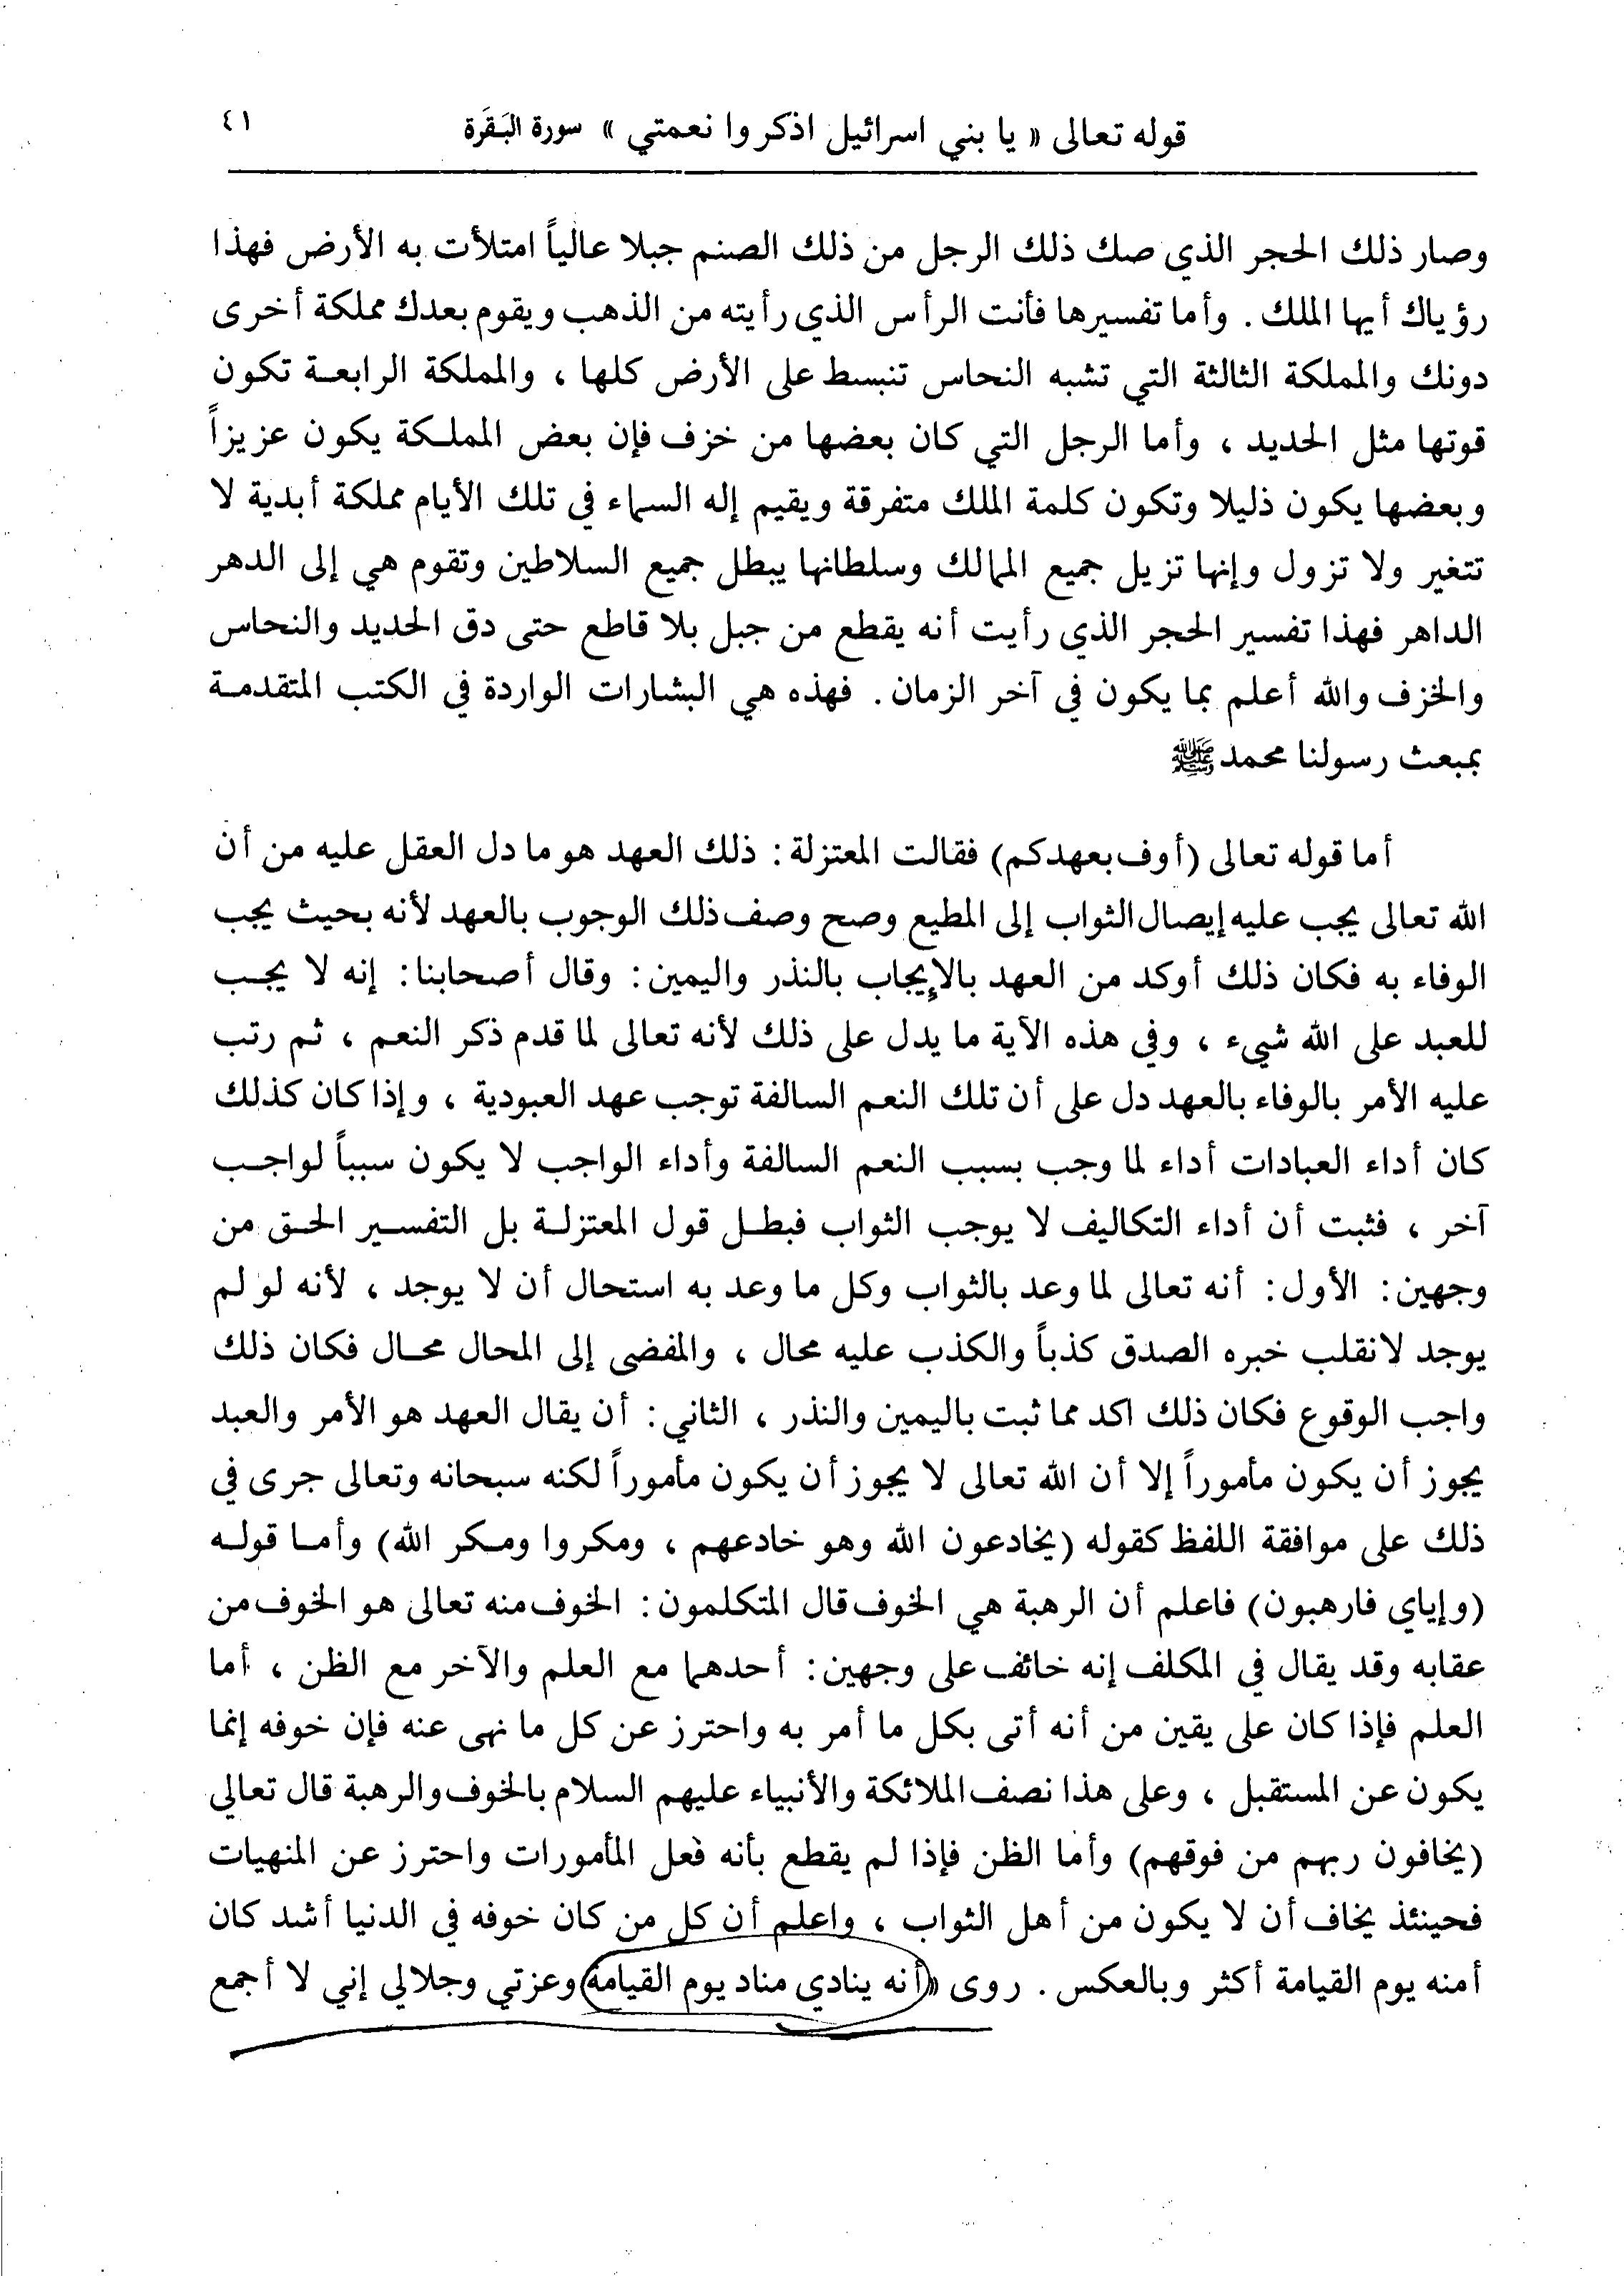 قوله تعالى « يا بني اسرائيل اذكروا نعمتي » سورة البَقَرة ٤١
وصار ذلك الحجر الذي صك ذلك الرجل من ذلك الصنم جبلا عالياً امتلأت به الأرض فهذا
رؤياك أيها الملك . وأما تفسيرها فأنت الرأس الذي رأيته من الذهب ويقوم بعدك مملكة أخرى
دونك والمملكة الثالثة التي تشبه النحاس تنبسط على الأرض كلها ، والمملكة الرابعة تكون
قوتها مثل الحديد ، وأما الرجل التي كان بعضها من خزف فإن بعض المملكة يكون عزيزاً
وبعضها يكون ذليلا وتكون كلمة الملك متفرقة ويقيم إله السماء في تلك الأيام مملكة أبدية لا
تتغير ولا تزول وإنها تزيل جميع الممالك وسلطانها يبطل جميع السلاطين وتقوم هي إلى الدهر
الداهر فهذا تفسير الحجر الذي رأيت أنه يقطع من جبل بلا قاطع حتى دق الحديد والنحاس
والخزف والله أعلم بما يكون في آخر الزمان . فهذه هي البشارات الواردة في الكتب المتقدمة
بمبعث رسولنا محمد ﷺ
أما قوله تعالى (أوف بعهدكم) فقالت المعتزلة : ذلك العهد هو ما دل العقل عليه من أن
الله تعالى يجب عليه إيصال الثواب إلى المطيع وصح وصف ذلك الوجوب بالعهد لأنه بحيث يجب
الوفاء به فكان ذلك أوكد من العهد بالإيجاب بالنذر واليمين : وقال أصحابنا : إنه لا يجب
للعبد على الله شيء ، وفي هذه الآية ما يدل على ذلك لأنه تعالى لما قدم ذكر النعم ، ثم رتب
عليه الأمر بالوفاء بالعهد دل على أن تلك النعم السالفة توجب عهد العبودية ، وإذا كان كذلك
كان أداء العبادات أداء لما وجب بسبب النعم السالفة وأداء الواجب لا يكون سبباً لواجب
آخر ، فثبت أن أداء التكاليف لا يوجب الثواب فبطل قول المعتزلة بل التفسير الحق من
وجهين : الأول : أنه تعالى لما وعد بالثواب وكل ما وعد به استحال أن لا يوجد ، لأنه لو لم
يوجد لانقلب خبره الصدق كذباً والكذب عليه محال ، والمفضى إلى المحال محال فكان ذلك
واجب الوقوع فكان ذلك اكد مما ثبت باليمين والنذر ، الثاني : أن يقال العهد هو الأمر والعبد
يجوز أن يكون مأموراً إلا أن الله تعالى لا يجوز أن يكون مأموراً لكنه سبحانه وتعالى جرى في
ذلك على موافقة اللفظ كقوله (يخادعون الله وهو خادعهم ، ومكروا ومكر الله) وأما قوله
(وإياي فارهبون) فاعلم أن الرهبة هي الخوف قال المتكلمون : الخوف منه تعالى هو الخوف من
عقابه وقد يقال في المكلف إنه خائف على وجهين : أحدهما مع العلم والآخر مع الظن ، أما
العلم فإذا كان على يقين من أنه أتى بكل ما أمر به واحترز عن كل ما نهى عنه فإن خوفه إنما
يكون عن المستقبل ، وعلى هذا نصف الملائكة والأنبياء عليهم السلام بالخوف والرهبة قال تعالى
(يخافون ربهم من فوقهم) وأما الظن فإذا لم يقطع بأنه فعل المأمورات واحترز عن المنهيات
فحينئذ يخاف أن لا يكون من أهل الثواب ، واعلم أن كل من كان خوفه في الدنيا أشد كان
أمنه يوم القيامة أكثر وبالعكس . روى « أنه ينادي مناد يوم القيامة وعزتي وجلالي إني لا أجمع